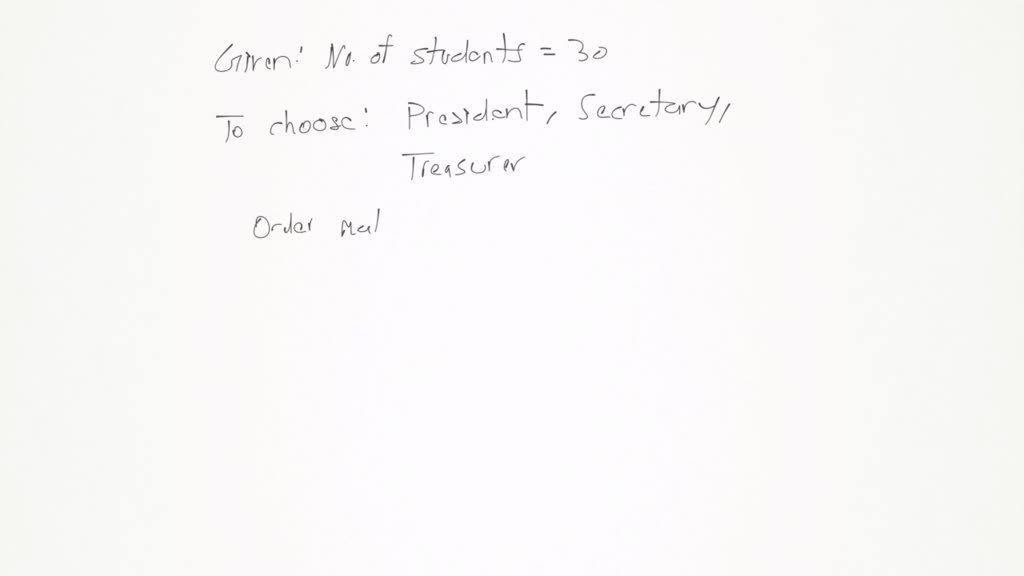 Given: No. of students = 30
To choose: President, Secretary,
Treasurer
Order